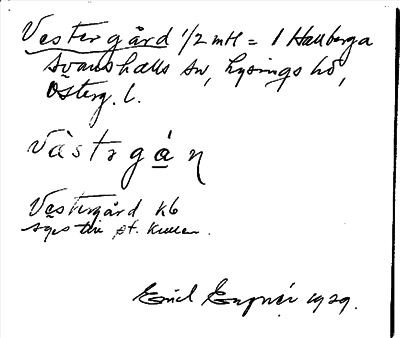 Vestergård 1/2 mtl = 1 Hallberga
Svanshals sn, Lysings hd,
Österg. l.
Västgán
Västergård kb
sges till pt. Kullen.
Emil Engnér 1929.